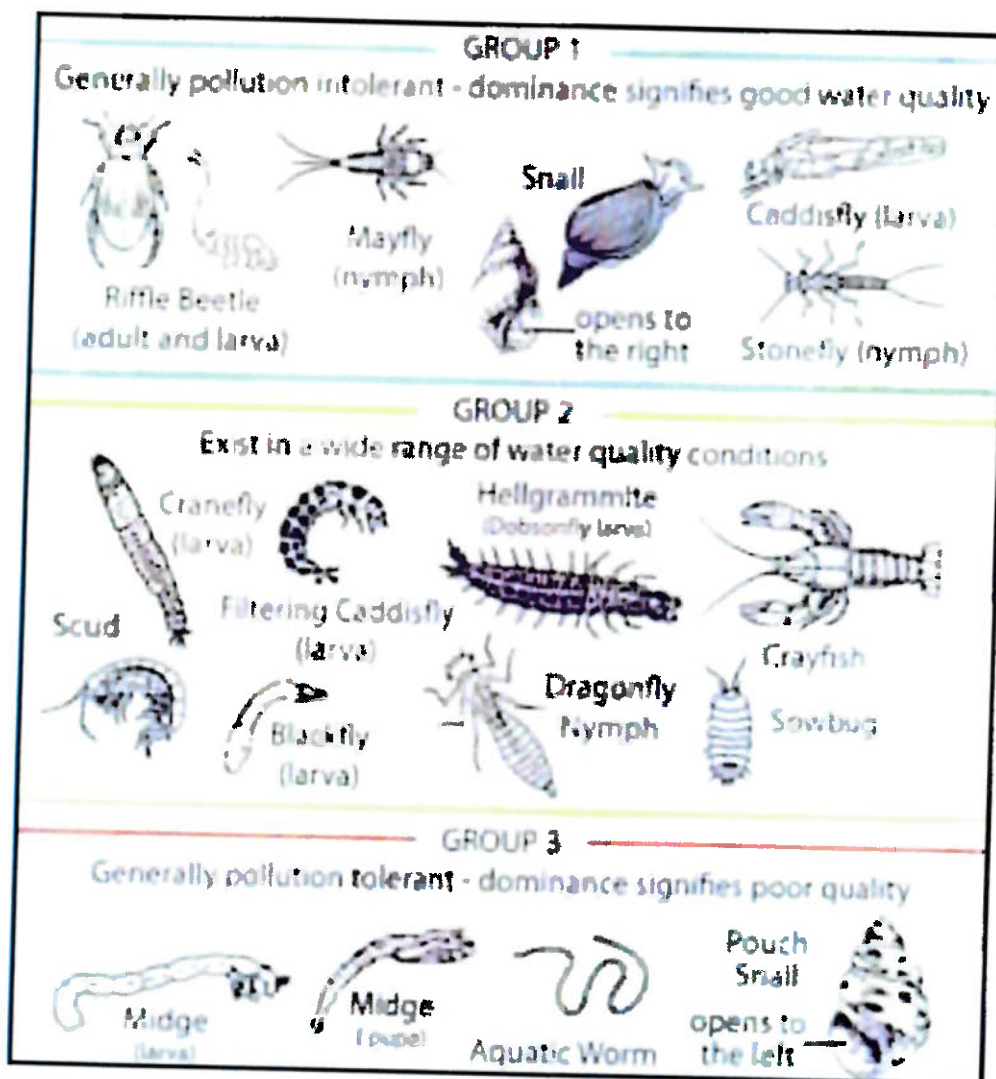 GROUP 1
Generally pollution intolerant - dominance signifies good water quality
Riffle Beetle
(adult and larva)
Mayfly
(nymph)
Snail
opens to
the right
Caddisfly (larva)
Stonefly (nymph)
GROUP 2
Exist in a wide range of water quality conditions
Cranefly
(larva)
Filtering Caddisfly
(larva)
Hellgrammite
(Dobsonfly larva)
Crayfish
Scud
Blackfly
(larva)
Dragonfly
Nymph
Sowbug
GROUP 3
Generally pollution tolerant - dominance signifies poor quality
Midge
(larva)
Midge
(pupa)
Aquatic Worm
Pouch
Snail
opens to
the left